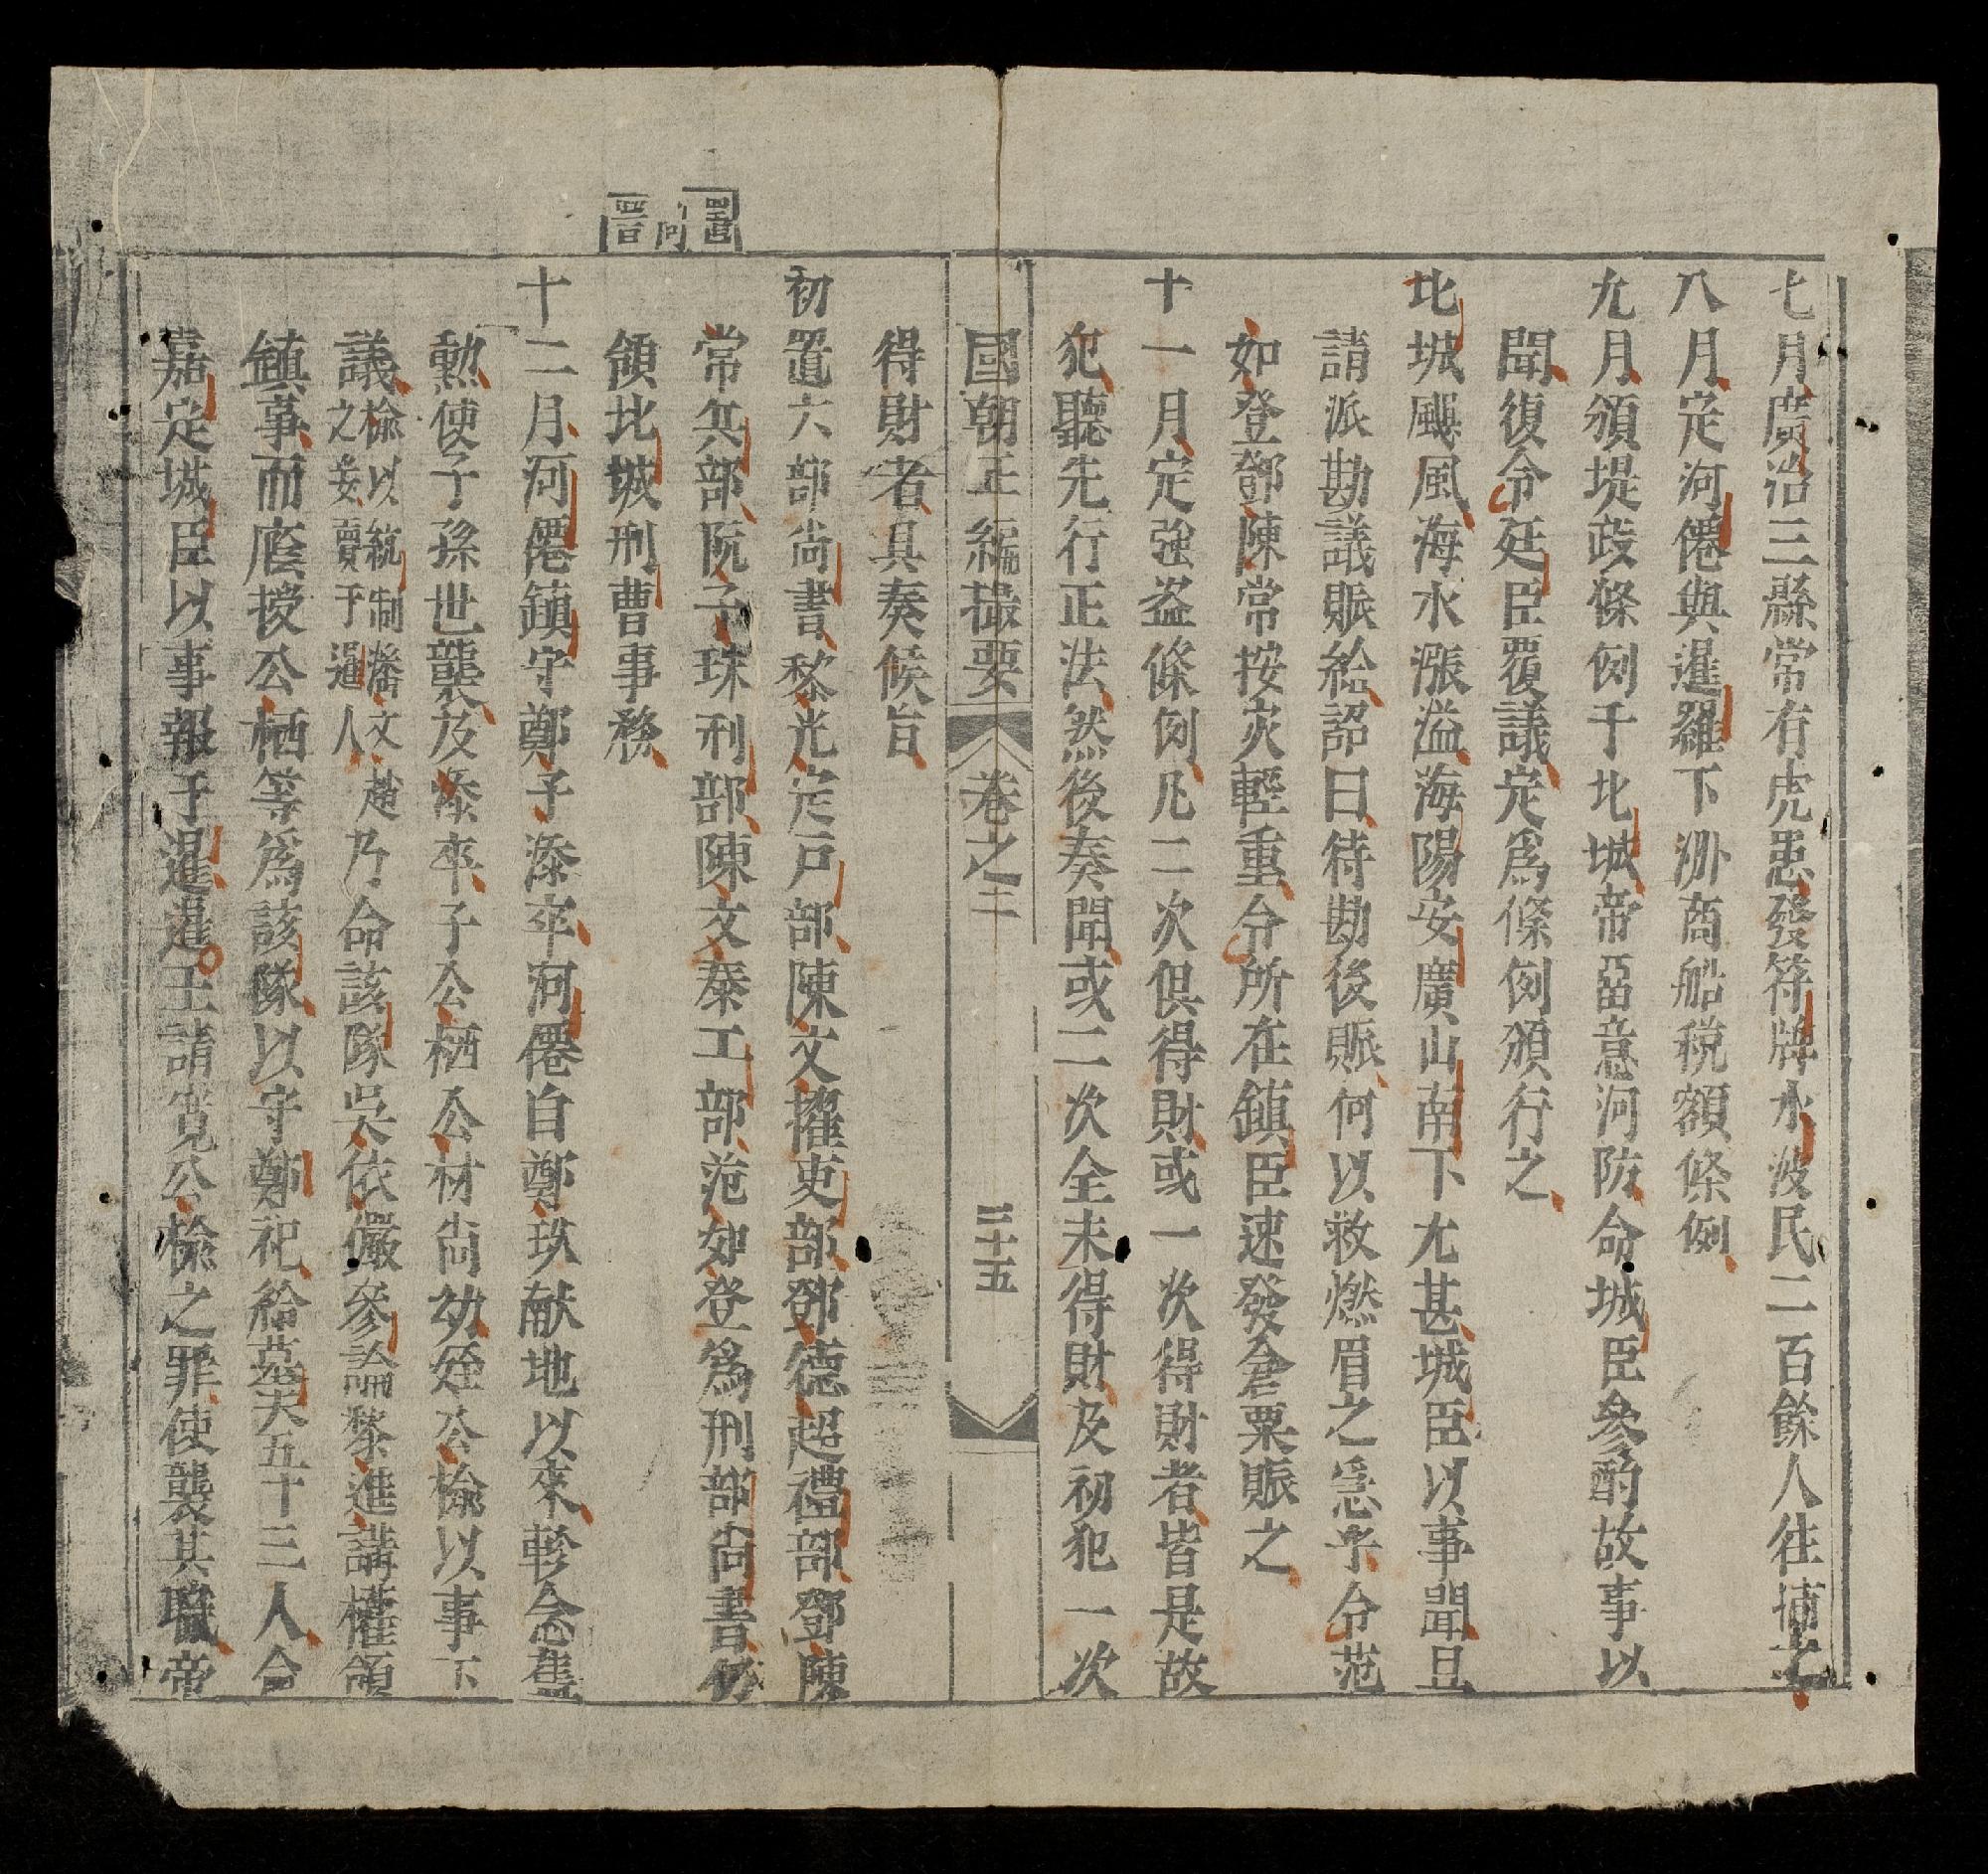 七月廣治三縣常有虎患發符牌水波民二百餘人往捕之
八月定河僊與暹羅下洲商船稅額條例
九月頒堤政條例于北城帝畱意河防命城臣參酌故事以
聞復令廷臣覆議定爲條例頒行之
北城颶風海水漲溢海陽安廣山南下尤甚城臣以事聞且
請派勘議賑給詔曰待勘後賑何以救燃眉之急乎令范
如登鄧陳常按灾輕重令所在鎮臣速發倉粟賑之
十一月定強盜條例凡二次俱得財或一次得財者皆是故
犯聽先行正法然後奏聞或二次全未得財及初犯一次
國朝正編撮要 卷之二 三十五
得財者具奏候旨
初置六部尚書黎光定戸部陳文㩁吏部鄧德超禮部鄧陳
常兵部阮子珠刑部陳文泰工部范如登爲刑部尚書仍
領北城刑曹事務
十二月河僊鎮守鄭子添卒河僊自鄭玖献地以來軫念舊
勲使子孫世襲及添卒子公栖公材尚幼姪公榆以事下
議榆以統制藩文趙之妾賣于暹人乃命該隊吳依儼參論黎進講權領
鎮事而廕授公栖等爲該隊以守鄭祀給墓夫五十三人令
嘉定城臣以事報于暹暹王請寬公榆之罪使襲其職帝